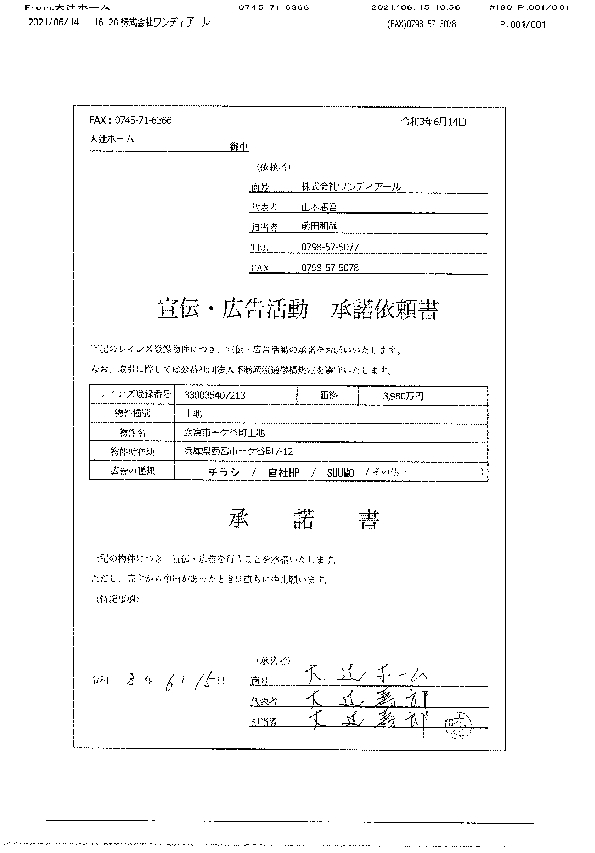 From:大辻ホーム 0745-71-6366 2021/06/15 10:56 #180 P.001/001
2021/06/14 16:20 株式会社ワンディアール (FAX)0798-57-5078 P.001/001
FAX：0745-71-6366 令和3年6月14日
大辻ホーム 御中
（依頼者）
商号 株式会社ワンディアール
代表者
担当者 前田和哉
TEL 0798-57-5077
FAX 0798-57-5078
宣伝・広告活動 承諾依頼書
下記のレインズ登録物件につき、宣伝・広告活動の承諾をお願いいたします。
なお、取引に際しては公益社団法人近畿圏不動産流通機構規定を遵守いたします。
レインズ登録番号 価格 3,980万円
物件種別 土地
物件名 西宮市一ケ谷町土地
物件所在地 兵庫県西宮市一ケ谷町7-12
広告の種類 チラシ / 自社HP / SUUMO / その他（ ）
承 諾 書
上記の物件につき、宣伝・広告を行うことを承諾いたします。
ただし、売主から申出があったときは直ちに中止願います。
（特記事項）
（承諾者）
令和 3 年 6月 15日 商号 大辻ホーム
代表者
担当者